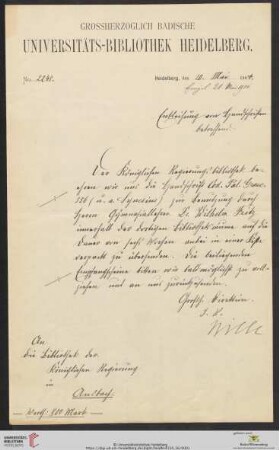 GROSSHERZOGLICH BADISCHE
UNIVERSITÄTS-BIBLIOTHEK HEIDELBERG.
No. 2241.
Heidelberg, den 20. Mai
Entleihung von Handschriften
betreffend.
Der Königlichen Regierungsbibliothek be-
ehren wir uns die Handschrift Cod. Pal. Graec.
(u. a. Synesius) zur Benützung durch
Herrn Gymnasiallehrer Dr. Wilhelm Fritz
innerhalb der dortigen Bibliothekräume auf die
Dauer von sechs Wochen anbei in einer Kiste
verpackt zu übersenden. Die beiliegenden
Empfangscheine bitten wir baldmöglichst zu voll-
ziehen und an uns zurückzusenden.
Grossh. Direktion.
Wille
An
die Bibliothek der
Königlichen Regierung
in
Ansbach.
Werth: 800 Mark.
Universitätsbibliothek Heidelberg